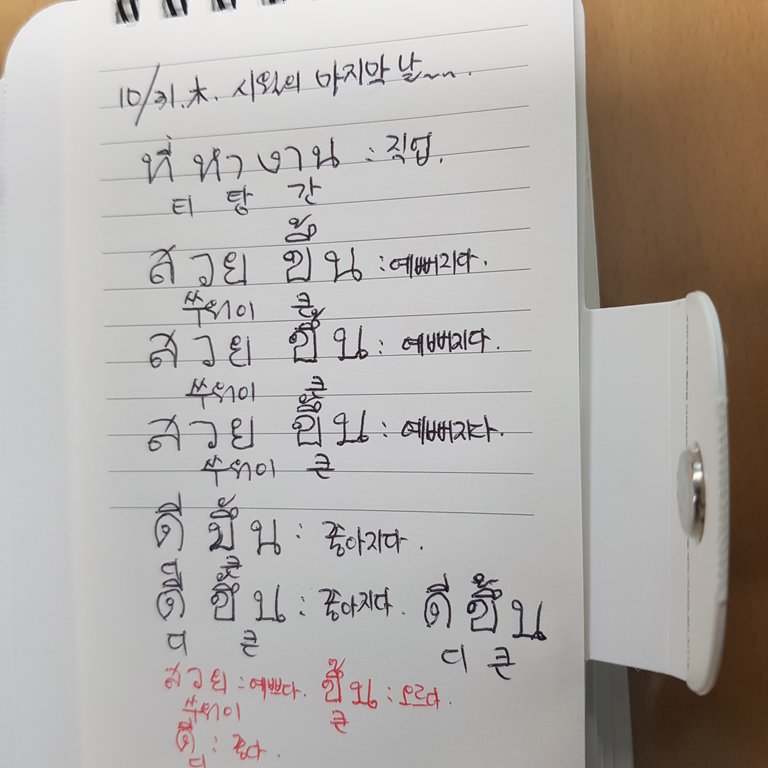 10/31.木. 시월의 마지막 날~~..
ที่ ทำ งาน : 직업.
티 탐 간
สวย ขึ้น : 예뻐지다.
쑤워이 큰
สวย ขึ้น : 예뻐지다.
쑤워이 큰
สวย ขึ้น : 예뻐지다.
쑤워이 큰
ดี ขึ้น : 좋아지다.
디 큰
ดี ขึ้น : 좋아지다. ดี ขึ้น
디 큰 디 큰
สวย : 예쁘다. ขึ้น : 오르다.
쑤워이 큰
ดี : 좋다.
디